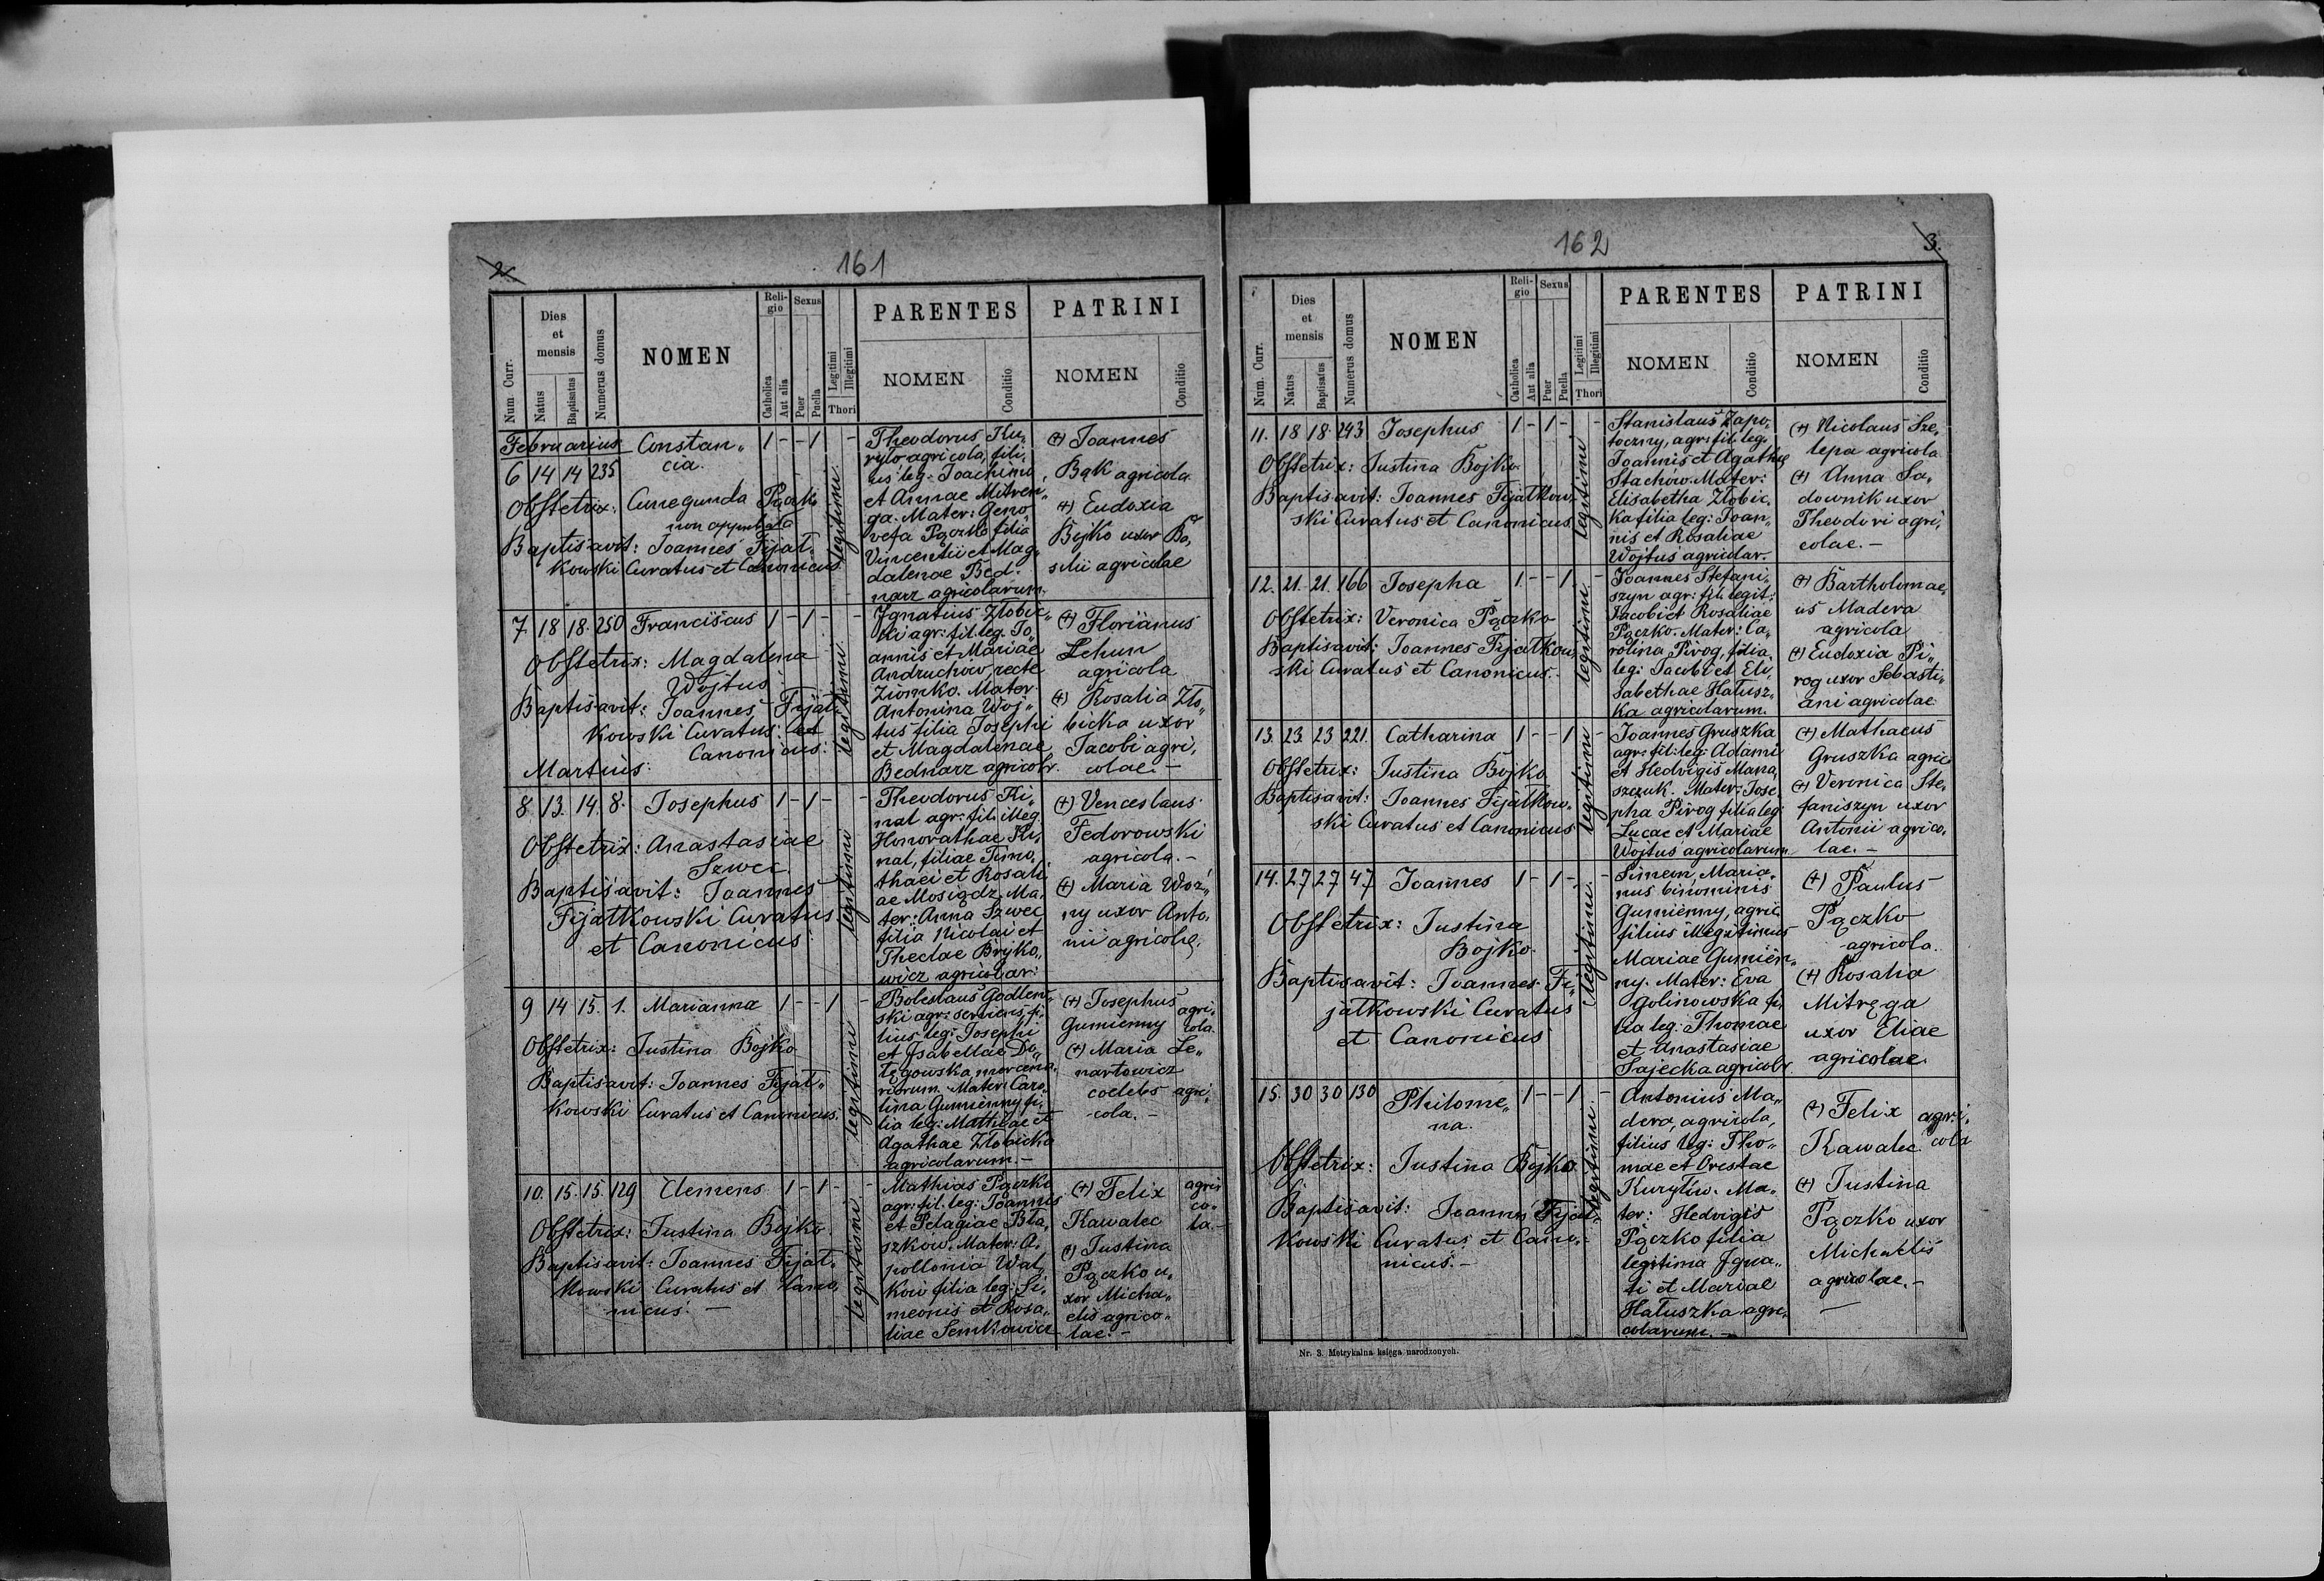 2.
161
Num. Curr.
Dies
et
mensis
Natus
Baptisatus
Numerus domus
NOMEN
Reli-
gio
Catholica
Aut alia
Sexus
Puer
Puella
Legitimi
Illegitimi
Thori
PARENTES
NOMEN
Conditio
PATRINI
NOMEN
Conditio
Februarius
6 14 14 235
Constan„
cia.
1 - - 1 -
Obstetrix: Cunegunda Pączko
non approbata
Baptisavit: Joannes Fijał„
kowski Curatus et Canonicus
legitimi
Theodorus Ku„
ryło agricola, fili„
us leg: Joachimi
et Annae Mitren„
ga. Mater: Geno„
vefa Pączko filia
Vincentii et Mag„
dalenae Bed„
narz agricolarum.
(+) Joannes
Bąk agricola
(+) Eudoxia
Bojko uxor Ba„
silii agricolae
7 18 18. 250 Franciscus 1 - 1 - -
Obstetrix: Magdalena
Wojtus
Baptisavit: Joannes Fijał„
kowski Curatus et
Canonicus:
legitimi
Ignatius Złobic„
ki agr: fil. leg. Jo„
annis et Mariae
Andruchów, recte
Ziomko. Mater
Antonina Woj„
tus filia Josephi
et Magdalenae
Bednarz agricolar.
(+) Florianus
Lehun
agricola
(+) Rosalia Zło„
bicka uxor
Jacobi agri„
colae. -
Martius:
8. 13. 14. 8. Josephus 1 - 1 - -
Obstetrix: Anastasiae
Szwec
Baptisavit: Joannes
Fijałkowski Curatus
et Canonicus
legitimi
Theodorus Ki„
nal agr: fil. illeg.
Honorathae Ki„
nal, filiae Timo„
thaei et Rosali„
ae Mosiądz. Ma„
ter: Anna Szwec
filia Nicolai et
Theclae Bryko„
wicz agricolar:
(+) Venceslaus
Fedorowski
agricola. -
(+) Maria Woź„
ny uxor Anto„
nii agricolae.
9 14 15. 1. Marianna 1 - - 1 -
Obstetrix: Justina Bojko
Baptisavit: Joannes Fijał„
kowski Curatus et Canonicus.
legitimi
Boleslaus Godlew„
ski agr: serviens, fi„
lius leg: Josephi
et Isabellae Do„
łęgowska, mercena„
riorum. Mater: Caro„
lina Gumienny fi„
lia leg: Matthiae et
Agathae Złobicka
agricolarum. -
(+) Josephus
Gumienny
agri„
cola
(+) Maria Le„
nartowicz
coelebs agri„
cola. -
10. 15. 15. 129 Clemens 1 - 1 - -
Obstetrix: Justina Bojko.
Baptisavit: Joannes Fijał„
kowski Curatus et Cano„
nicus: -
legitimi
Mathias Pączko
agr: fil. leg: Joannes
et Pelagiae Bła„
szków. Mater: A„
pollonia Wał„
ków filia leg: Si„
meonis et Rosa„
liae Semkowicz
(+) Felix
Kawalec
agri„
co„
la. -
(+) Justina
Pączko u„
xor Micha„
elis agrico„
lae. -
162
3.
Num. Curr.
Dies
et
mensis
Natus
Baptisatus
Numerus domus
NOMEN
Reli-
gio
Catholica
Aut alia
Sexus
Puer
Puella
Legitimi
Illegitimi
Thori
PARENTES
NOMEN
Conditio
PATRINI
NOMEN
Conditio
11. 18 18. 243 Josephus 1 - 1 - -
Obstetrix: Justina Bojko
Baptisavit: Joannes Fijałkow„
ski Curatus et Canonicus
legitimi
Stanislaus Zapo„
toczny, agr: fil. leg.
Joannis et Agathae
Stachów. Mater:
Elisabetha Złobic„
ka filia leg: Joan„
nis et Rosaliae
Wojtus agricolar.
(+) Nicolaus Sze„
lepa agricola
(+) Anna Sa„
downik uxor
Theodori agri„
colae. -
12. 21. 21. 166 Josepha 1 - - 1 -
Obstetrix: Veronica Pączko
Baptisavit: Joannes Fijałkow„
ski Curatus et Canonicus.
legitimi
Joannes Stefani„
szyn agr: fil. legit:
Jacobi et Rosaliae
Pączko. Mater: Ca„
rolina Pirog, filia
leg: Jacobi et Eli„
sabethae Hałusz„
ka agricolarum.
(+) Bartholomae„
us Madera
agricola
(+) Eudoxia Pi„
rog uxor Sebasti„
ani agricolae
13. 23. 23 221. Catharina 1 - - 1 -
Obstetrix: Justina Bojko
Baptisavit: Joannes Fijałkow„
ski Curatus et Canonicus
legitimi
Joannes Gruszka
agr: fil. leg: Adami
et Hedvigis Mana„
szczuk. Mater: Jose„
pha Pirog filia leg
Lucae et Mariae
Wojtus agricolarum
(+) Mathaeus
Gruszka agric
(+) Veronica Ste„
faniszyn uxor
Antonii agrico„
lae. -
14. 27 27 47 Joannes 1 - 1 - -
Obstetrix: Justina
Bojko.
Baptisavit: Joannes Fi„
jałkowski Curatus
et Canonicus
legitimi
Simeon, Maria„
nus binominis
Gumienny, agric
filius illegitimus
Mariae Gumien„
ny. Mater: Eva
Golinowska fi„
lia leg: Thomae
et Anastasiae
Sajecka agricolr
(+) Paulus
Pączko
agricola.
(+) Rosalia
Mitręga
uxor Eliae
agricolae.
15. 30 30 130 Philome„
na.
1 - - 1 -
Obstetrix: Justina Bojko
Baptisavit: Joannes Fijał„
kowski Curatus et Cano„
nicus. -
legitimi
Antonius Ma„
dera, agricola,
filius leg: Tho„
mae et Orestae
Kuryłiw. Ma„
ter: Hedvigis
Pączko filia
legitima Igna„
ti et Mariae
Hałuszka agri„
colarum. -
(+) Felix
Kawalec
agri„
cola
(+) Justina
Pączko uxor
Michaelis
agricolae. -
Nr. 3. Metrykalna księga narodzonych.